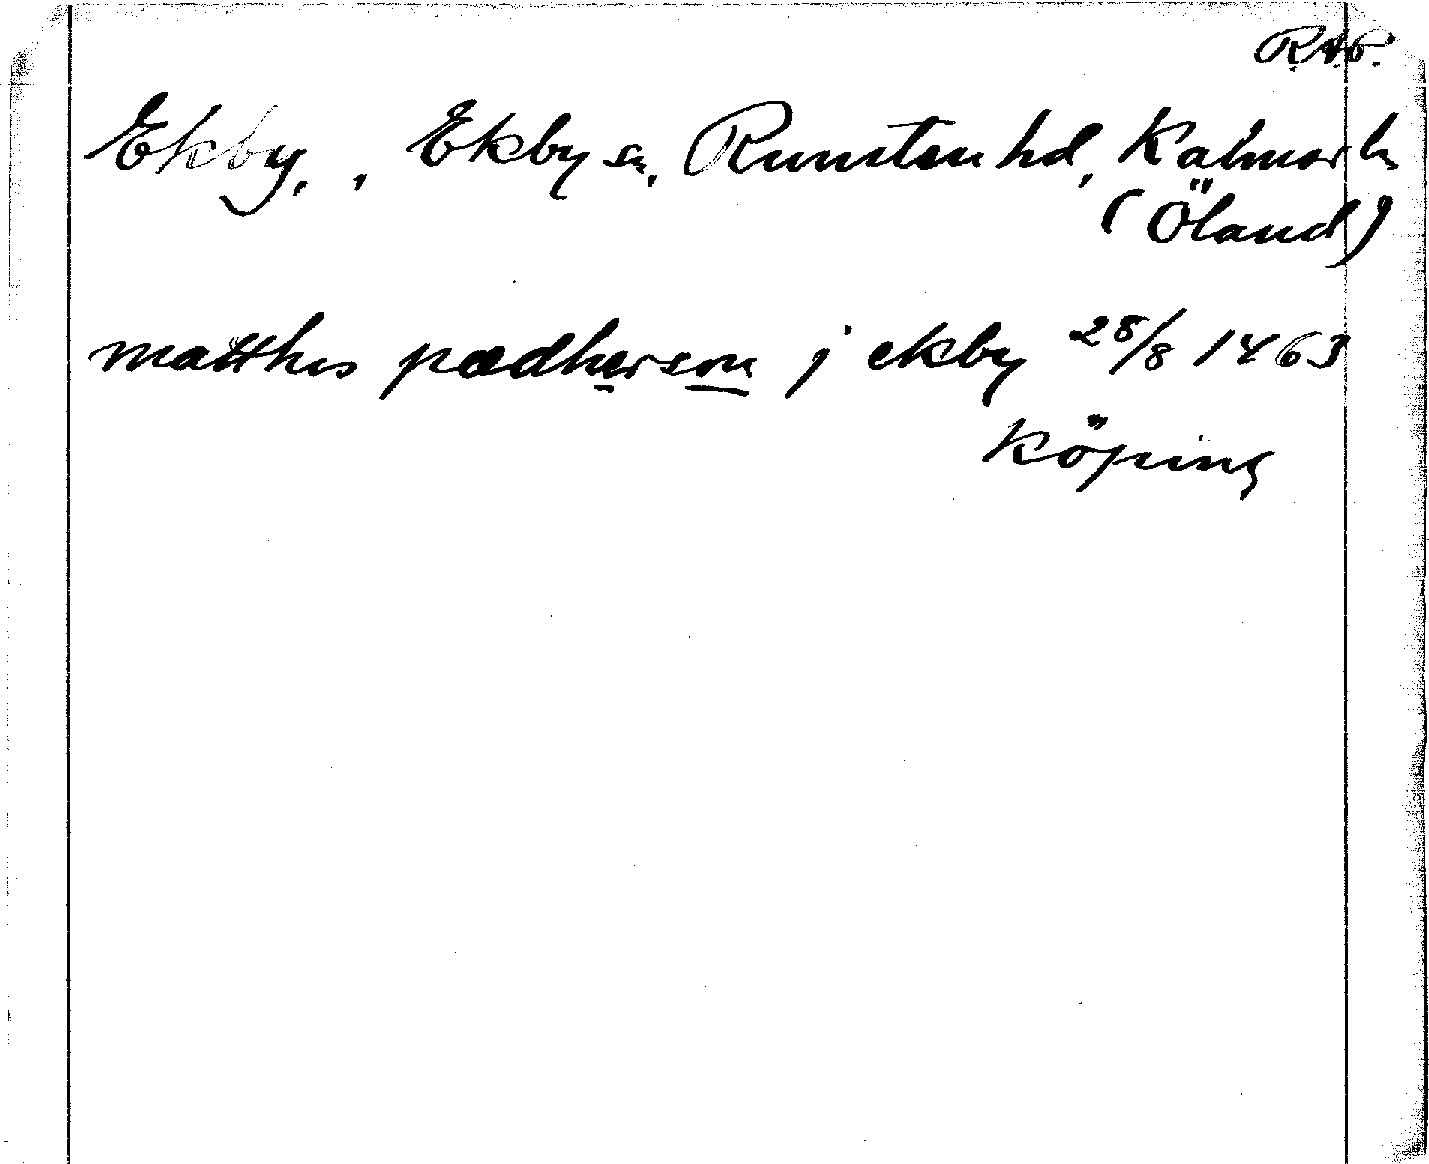 R.A.P.
Ekby, , Ekby sn, Runsten hd, Kalmar ln
(Öland)
matthis pædherson j ekby 28/8 1463
Köping